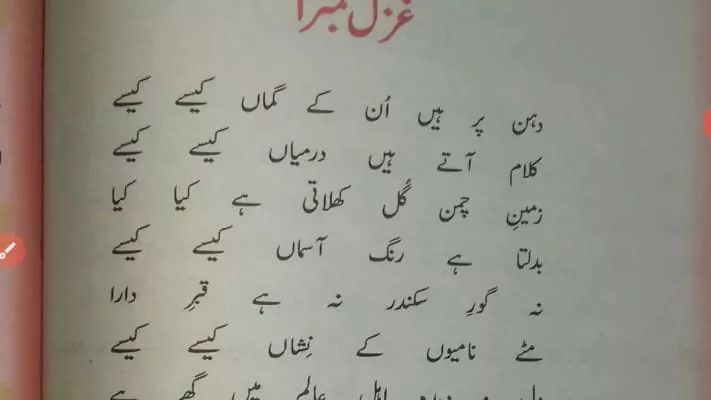 غزل نمبرا
دہن پر ہیں اُن کے گماں کیسے کیسے
کلام آتے ہیں درمیاں کیسے کیسے
زمینِ چمن گُل کھلاتی ہے کیا کیا
بدلتا ہے رنگ آسماں کیسے کیسے
نہ گورِ سکندر نہ ہے قبرِ دارا
مٹے نامیوں کے نِشاں کیسے کیسے
دل و دیدہ اہلِ عالم میں گھر ہے